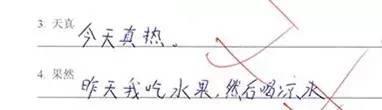 3. 天真
今天真热。
4. 果然
昨天我吃水果,然后喝凉水